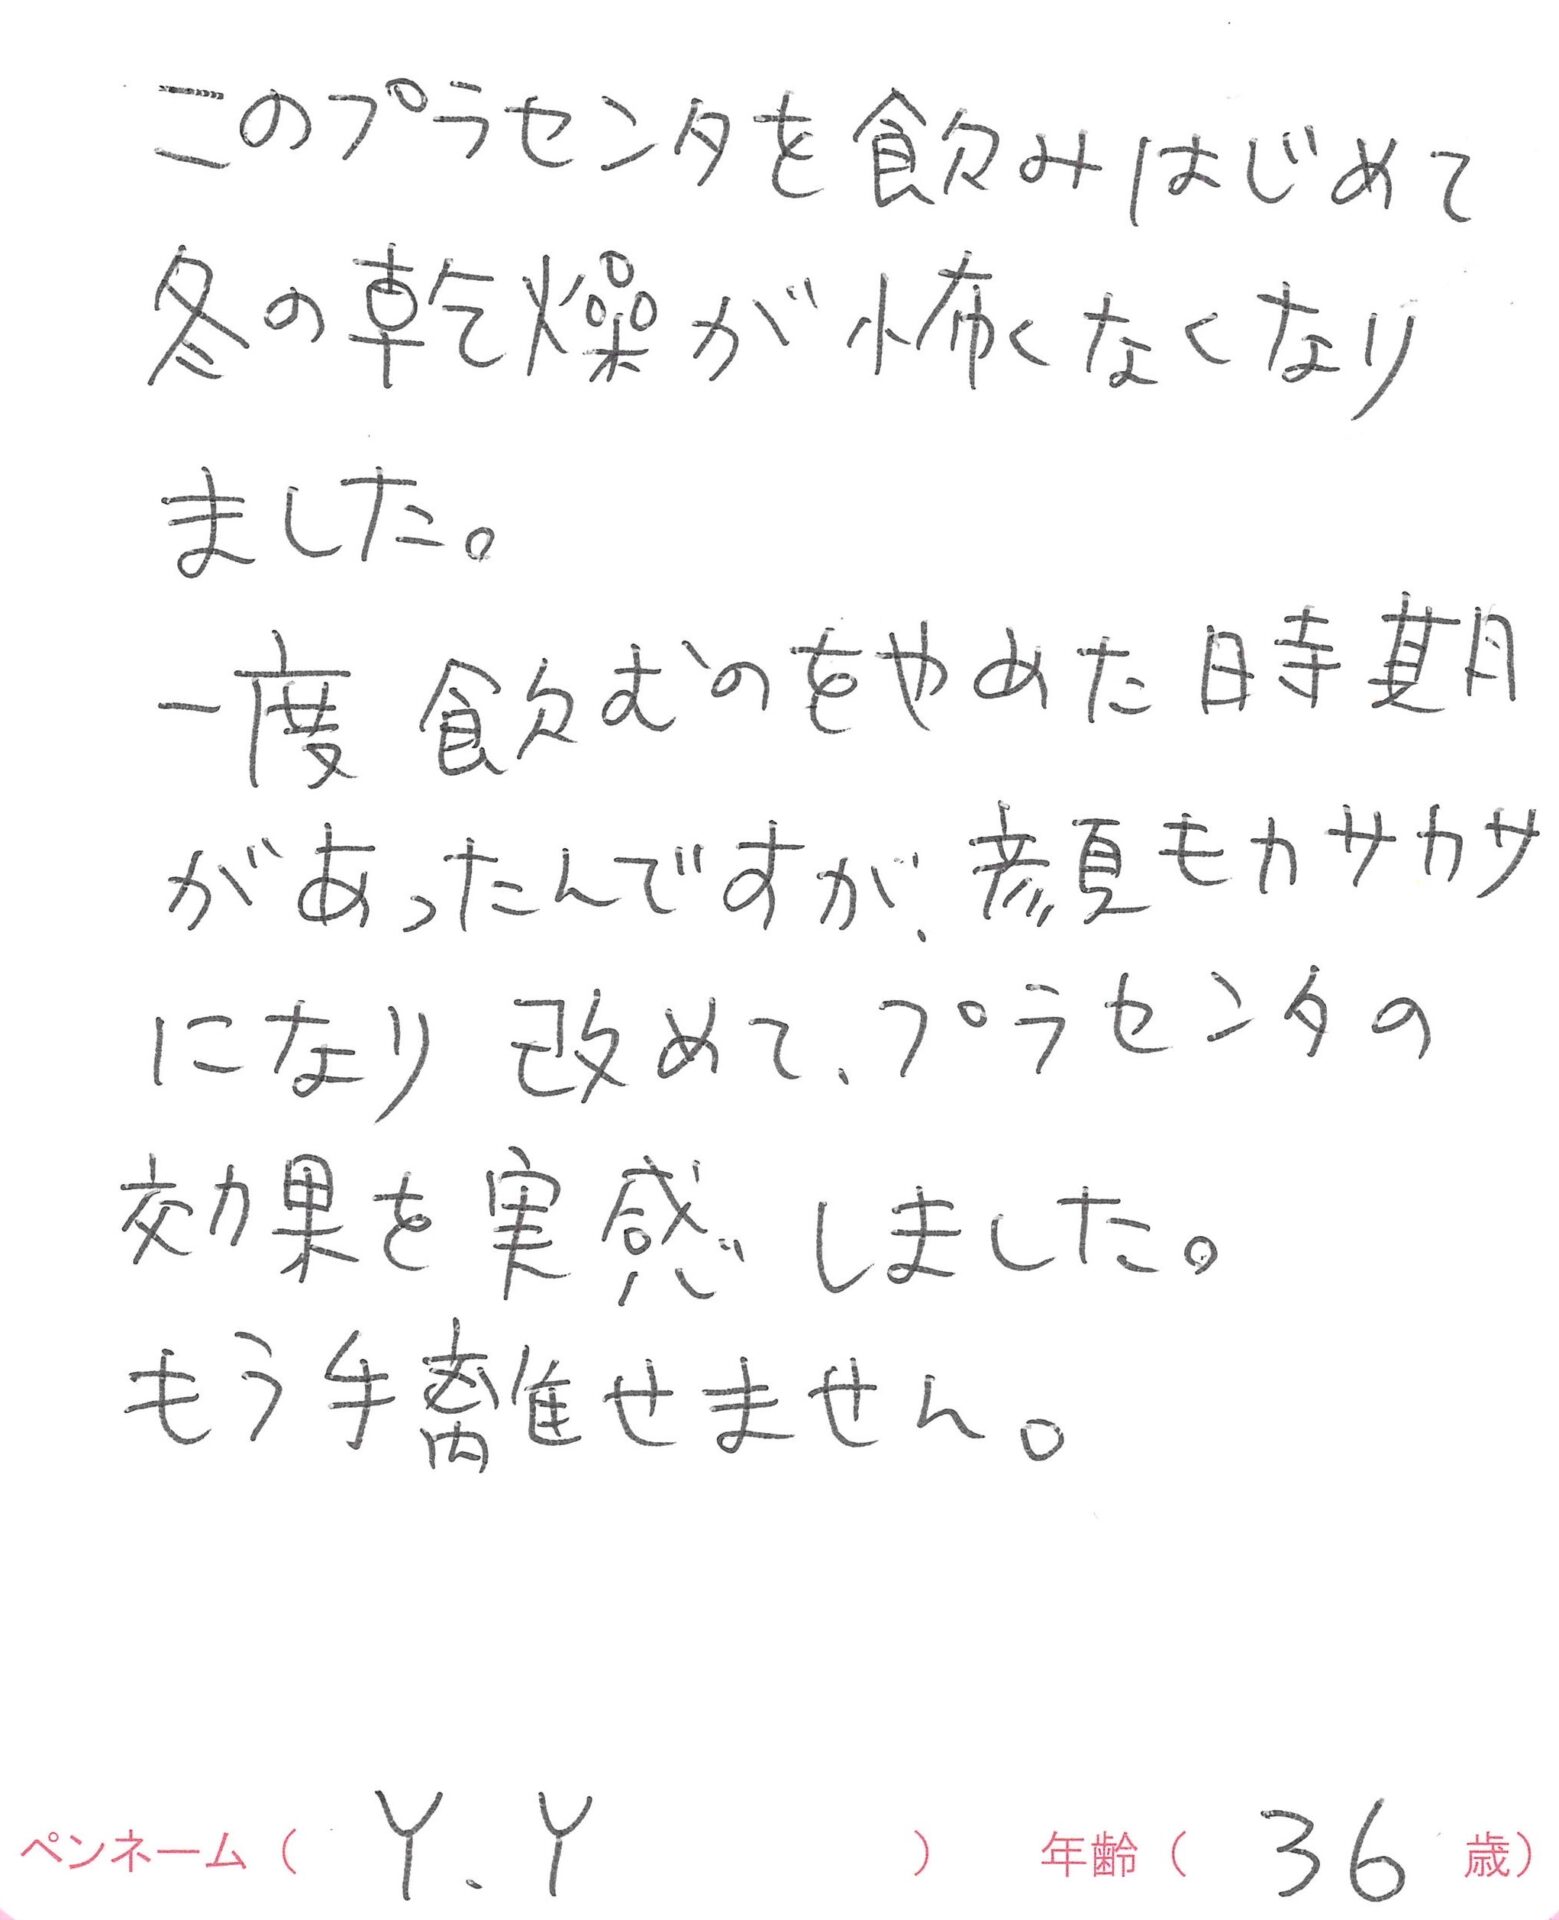 このプラセンタを飲みはじめて
冬の乾燥が怖くなくなり
ました。
一度 飲むのをやめた時期
があったんですが、顔もカサカサ
になり 改めて、プラセンタの
効果を実感しました。
もう手離せません。
ペンネーム（ Y.Y ） 年齢（ 36 歳）